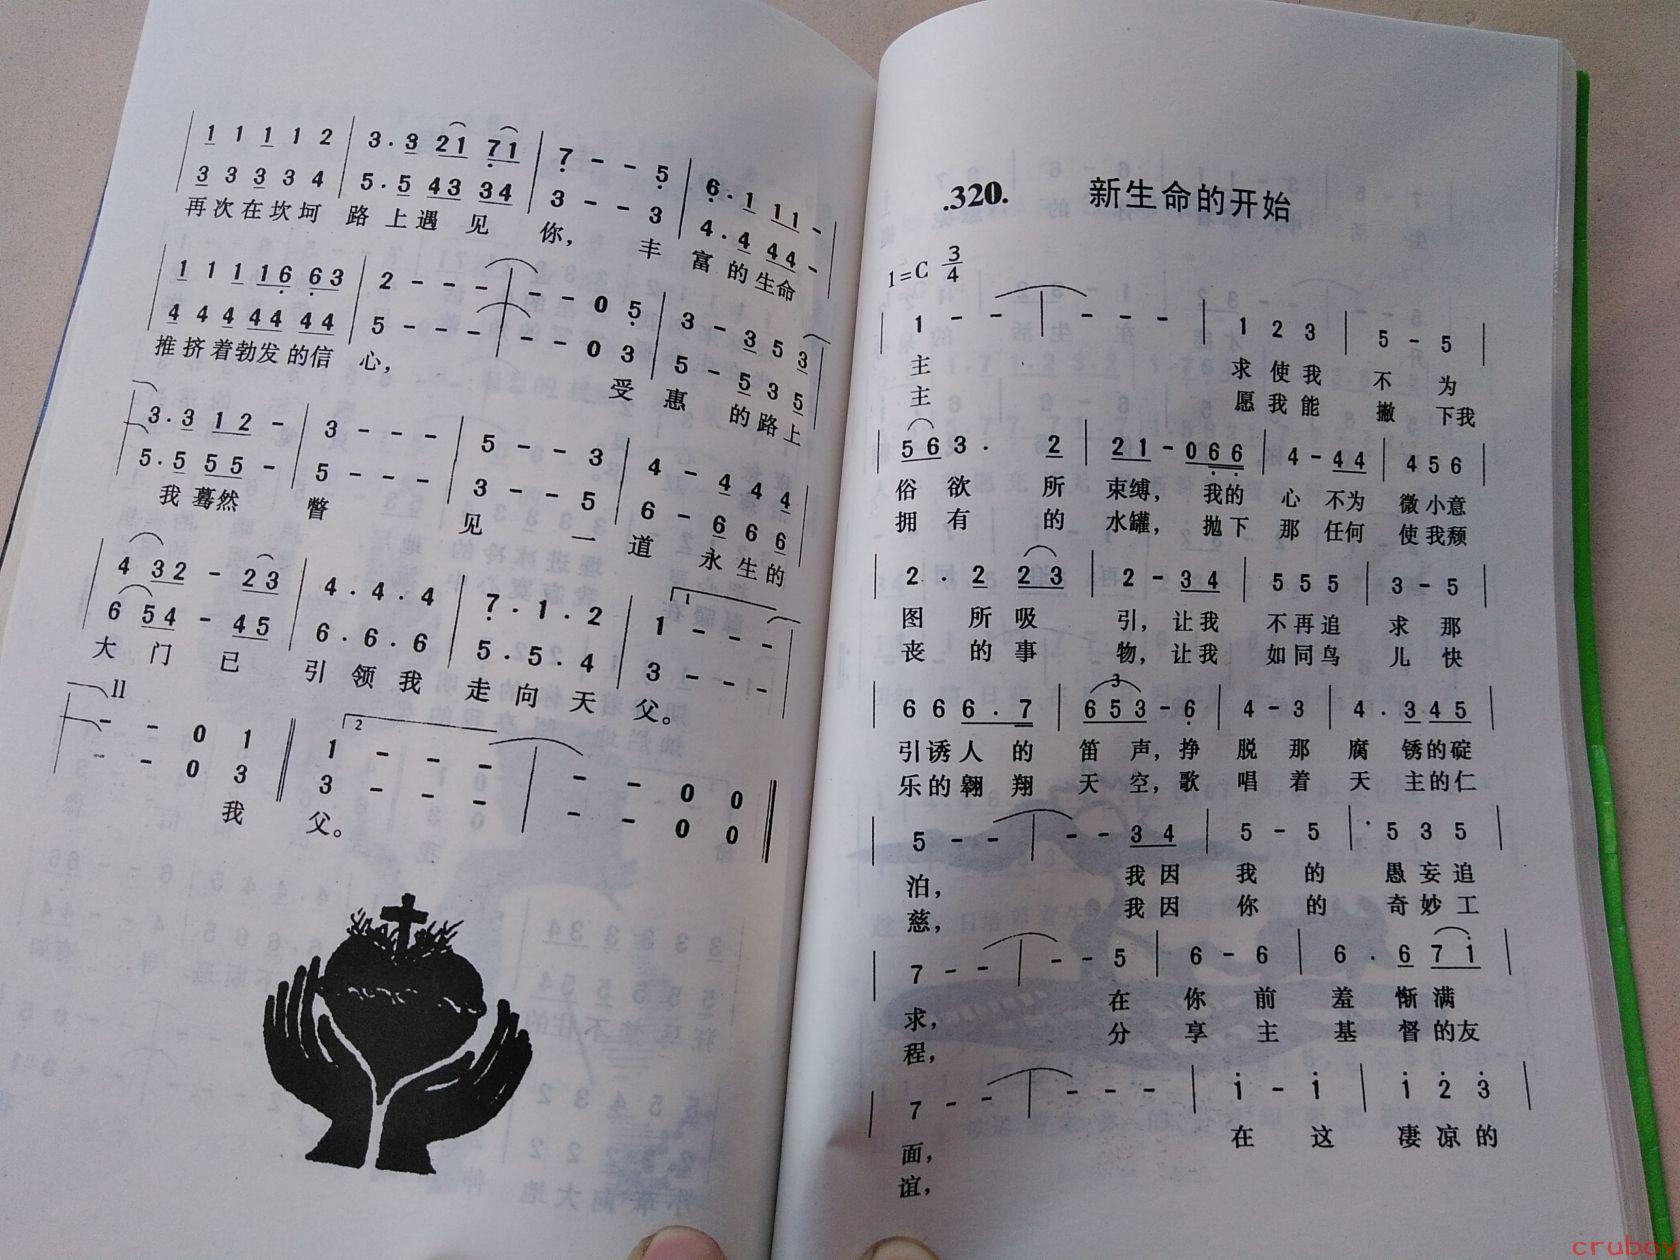 1 1 1 1 2 | 3 . 3 21 71 | 7 - - 5 | 6 . 1 11 - |
3 3 3 3 4 | 5 . 5 43 34 | 3 - - 3 | 4 . 4 44 - |
再次在坎坷 路上遇见 你， 丰 富的生命
1 1 1 16 63 | 2 - - - | - - 0 5 | 3 - 3 5 3 |
4 4 4 44 44 | 5 - - - | - - 0 3 | 5 - 5 3 5 |
推挤着勃发的信 心， 受 惠 的路上
3 . 3 12 - | 3 - - - | 5 - - 3 | 4 - 4 4 4 |
5 . 5 55 - | 5 - - - | 3 - - 5 | 6 - 6 6 6 |
我蓦然 瞥 见 一 道 永生的
4 32 - 23 | 4 . 4 . 4 | 7 . 1 . 2 | 1 1 - - - |
6 54 - 45 | 6 . 6 . 6 | 5 . 5 . 4 | 3 - - - |
大门已 引领我 走向天 父。
11
- - 0 1 || 2 1 - - - | - - 0 0 ||
- - 0 3 || 3 - - - | - - 0 0 ||
我 父。
.320. 新生命的开始
1=C 3/4
| 1 - - | - - - | 1 2 3 | 5 - 5 |
主 求使我 不 为
主 愿我能 撇 下我
| 56 3 . 2 | 21 - 066 | 4 - 44 | 4 5 6 |
俗欲 所 束缚， 我的 心 不为 微小意
拥有 的 水罐， 抛下 那 任何 使我颓
| 2 . 2 23 | 2 - 34 | 5 5 5 | 3 - 5 |
图 所吸 引，让我 不再追 求 那
丧 的事 物，让我 如同鸟 儿 快
| 6 6 6 . 7 | 3 653 - 6 | 4 - 3 | 4 . 3 45 |
引诱人的 笛声，挣 脱那 腐 锈的碇
乐的翱翔 天空，歌 唱着 天 主的仁
| 5 - - | - - 34 | 5 - 5 | 5 3 5 |
泊， 我因 我 的 愚妄追
慈， 我因 你 的 奇妙工
| 7 - - | - - 5 | 6 - 6 | 6 . 6 71 |
求， 在 你 前 羞 惭满
程， 分 享 主 基 督的友
| 7 - - | - - - | 1 - 1 | 1 2 3 |
面， 在 这 凄凉的
谊，
cruboy